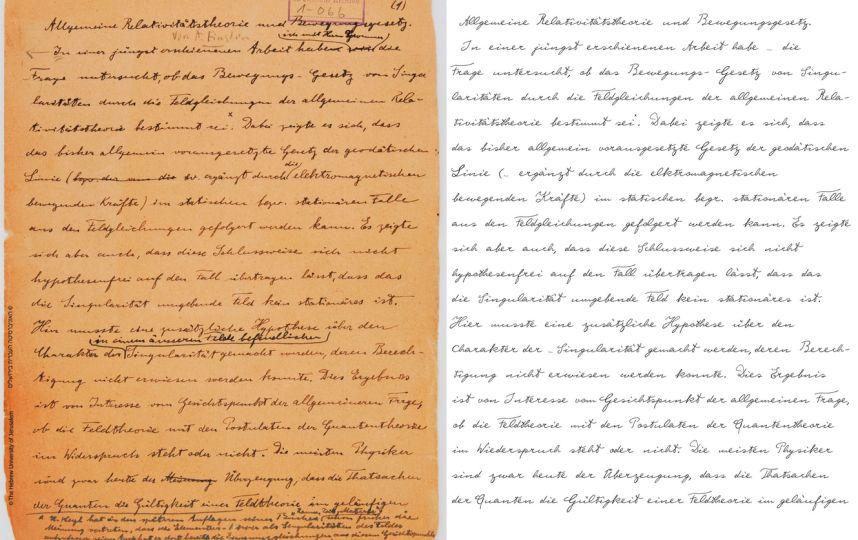 (1)
1-066
Allgemeine Relativitätstheorie und Bewegungsgesetz.
von A. Einstein
In einer jüngst erschienenen Arbeit haben die
Frage untersucht, ob das Bewegungs-Gesetz von Singu-
laritäten durch die Feldgleichungen der allgemeinen Rela-
tivitätstheorie bestimmt sei x. Dabei zeigte es sich, dass
das bisher allgemein vorausgesetzte Gesetz der geodätischen
die
Linie ( ergänzt durch elektromagnetischen
bewegenden Kräfte) im statischen bezw. stationären Falle
aus den Feldgleichungen gefolgert werden kann. Es zeigte
sich aber auch, dass diese Schlussweise sich nicht
hypothesenfrei auf den Fall übertragen lässt, dass das
die Singularität umgebende Feld kein stationäres ist.
Hier musste eine zusätzliche Hypothese über den
in einem äusseren Felde befindlichen
Charakter der Singularität gemacht werden, deren Berech-
tigung nicht erwiesen werden konnte. Dies Ergebnis
ist von Interesse vom Gesichtspunkt der allgemeineren Frage,
ob die Feldtheorie mit den Postulaten der Quantentheorie
im Widerspruch steht oder nicht. Die meisten Physiker
sind zwar heute der Überzeugung, dass die Thatsachen
der Quanten die Gültigkeit einer Feldtheorie im geläufigen
© The Hebrew University of Jerusalem
© האוניברסיטה העברית בירושלים
Allgemeine Relativitätstheorie und Bewegungsgesetz.
In einer jüngst erschienenen Arbeit habe – die
Frage untersucht, ob das Bewegungs- Gesetz von Singu-
laritäten durch die Feldgleichungen der allgemeinen Rela-
tivitätstheorie bestimmt sei. Dabei zeigte es sich, dass
das bisher allgemein vorausgesetzte Gesetz der geodätischen
Linie (– ergänzt durch die elktromagnetischen
bewegenden Kräfte) im statischen begr. stationären Falle
aus den Feldgleichungen gefolgert werden kann. Es zeigte
sich aber auch, dass diese Schlussweise sich nicht
hypothesenfrei auf den Fall übertragen lässt, dass das
die Singularität umgebende Feld kein stationäres ist.
Hier musste eine zusätzliche Hypothese über den
Charakter der – Singularität gemacht werden, deren Berech-
tigung nicht erwiesen werden konnte. Dies Ergebnis
ist von Interesse vom Gesichtspunkt der allgemeinen Frage,
ob die Feldtheorie mit den Postulaten der Quantentheorie
im Wiederspruch steht oder nicht. Die meisten Physiker
sind zwar heute der Überzeugung, dass die Thatsachen
der Quanten die Gültigkeit einer Feldtheorie im geläufigen